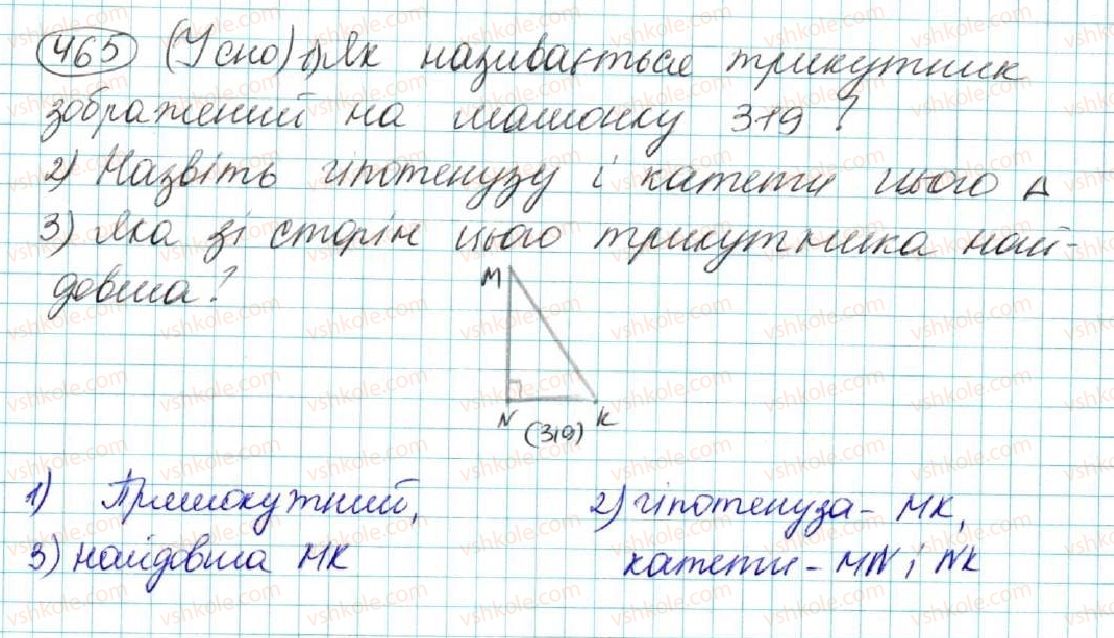 465 (Усно) 1) Як називається трикутник
зображений на малюнку 319 ?
2) Назвіть гіпотенузу і катети цього Δ
3) Яка зі сторін цього трикутника най-
довша?
M
N K
(319)
1) Прямокутний, 2) гіпотенуза - MK,
3) найдовша MK катети - MN і NK
vshkole.com